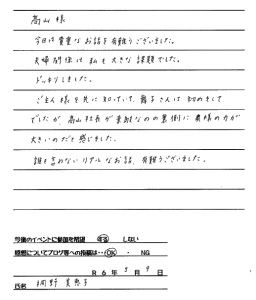 高山様
今日は貴重なお話を有難うございました。
夫婦関係は私も大きな課題でした。
ドッキリしました。
ご主人様を先に知っていて、舞子さんは初めまして
でしたが、高山社長が素敵なのの裏側に奥様の力が
大きいのだと感じました。
誰も言わないリアルなお話、有難うございました。
今後のイベントに参加を希望 する しない
感想についてブログ等への掲載は… OK ・ NG
R6年 5月9日
氏名 桐野 美恵子